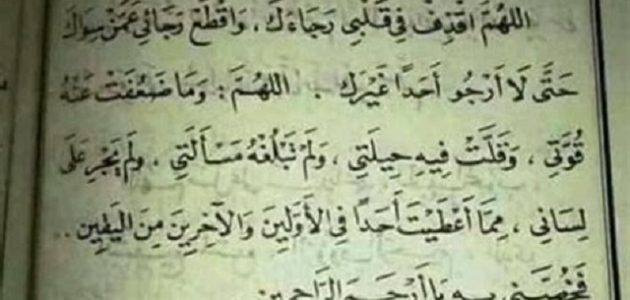 اللهُمَّ اقْذِفْ فِي قَلْبِي رَجَاءَكَ، وَاقْطَعْ رَجَائِي عَمَّنْ سِوَاكَ
حَتَّى لَا أَرْجُو أَحَدًا غَيْرَكَ. اللهُمَّ: وَمَا ضَعُفَتْ عَنْهُ
قُوَّتِي، وَقَلَّتْ فِيهِ حِيلَتِي، وَلَمْ تَبْلُغْهُ مَسْأَلَتِي. وَلَمْ يَجْرِ عَلَى
لِسَانِي، مِمَّا أَعْطَيْتَ أَحَدًا فِي الْأَوَّلِينَ وَالْآخِرِينَ مِنَ الْيَقِينِ..
فَخُصَّنِي بِهِ يَا أَرْحَمَ الرَّاحِمِينَ